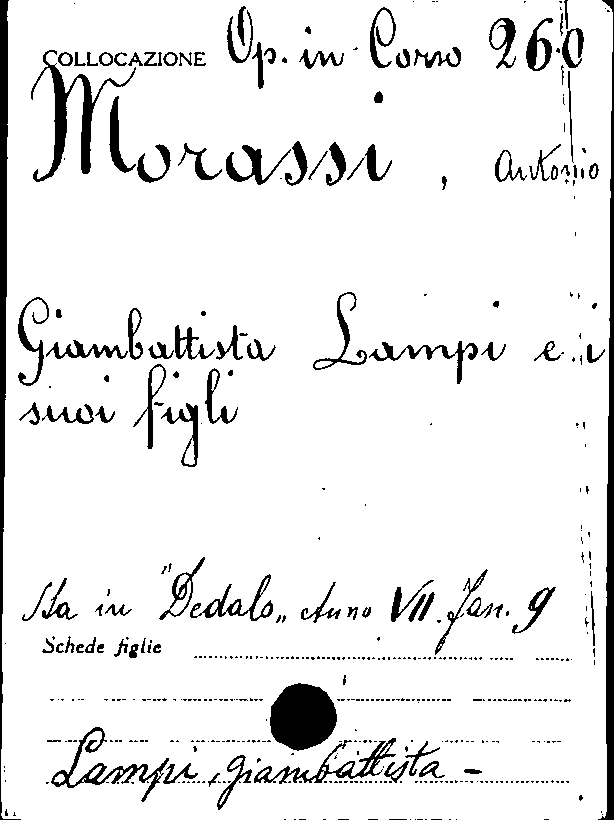 COLLOCAZIONE Op. in Corso 260
Morassi, Antonio
Giambattista Lampi e i
suoi figli
Sta in "Dedalo" Anno VII. Fas. 9
Schede figlie
Lampi, Giambattista -